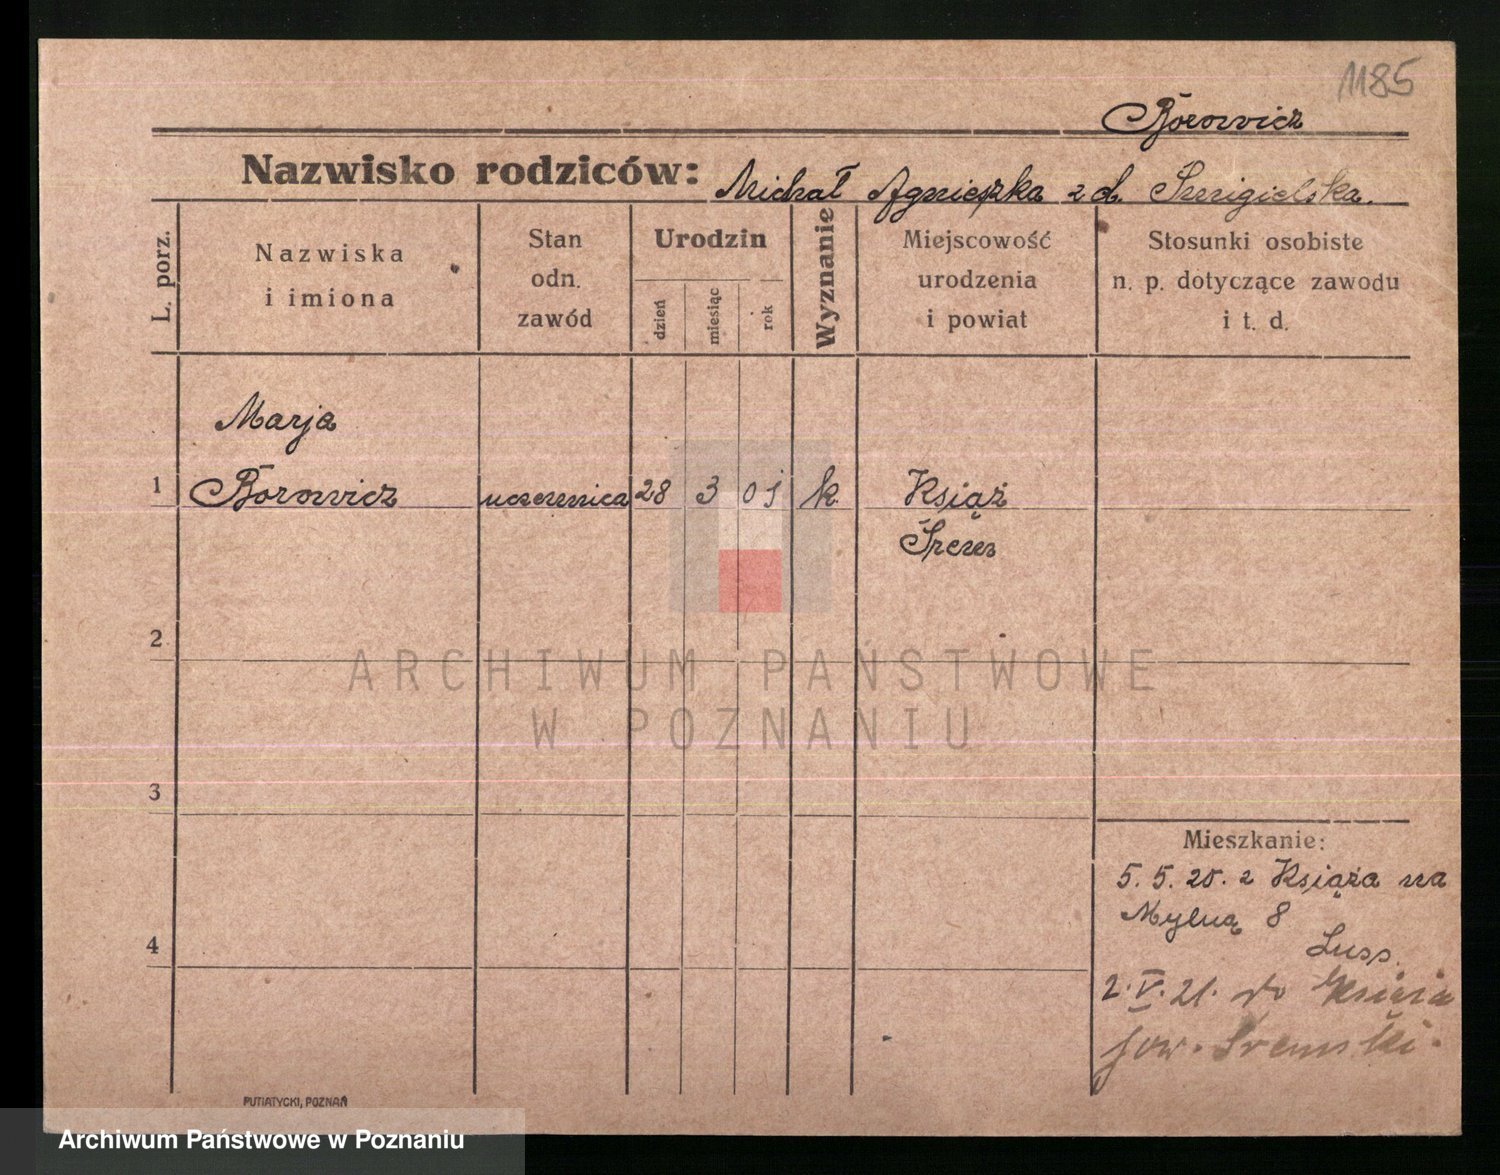 1185
Borowicz
Nazwisko rodziców: Michał Agnieszka z d. Szmigielska.
L. porz.
Nazwiska
i imiona
Stan
odn.
zawód
Urodzin
dzień
miesiąc
rok
Wyznanie
Miejscowość
urodzenia
i powiat
Stosunki osobiste
n. p. dotyczące zawodu
i t. d.
Marja
1 Borowicz uczennica 28 3 01 k Książ
Śrem
2
ARCHIWUM PAŃSTWOWE
W POZNANIU
3
Mieszkanie:
5. 5. 20. z Książa na
Mylną 8
4
2. V. 21. do Książa
pow. Śremski.
PUTIATYCKI, POZNAŃ
Archiwum Państwowe w Poznaniu